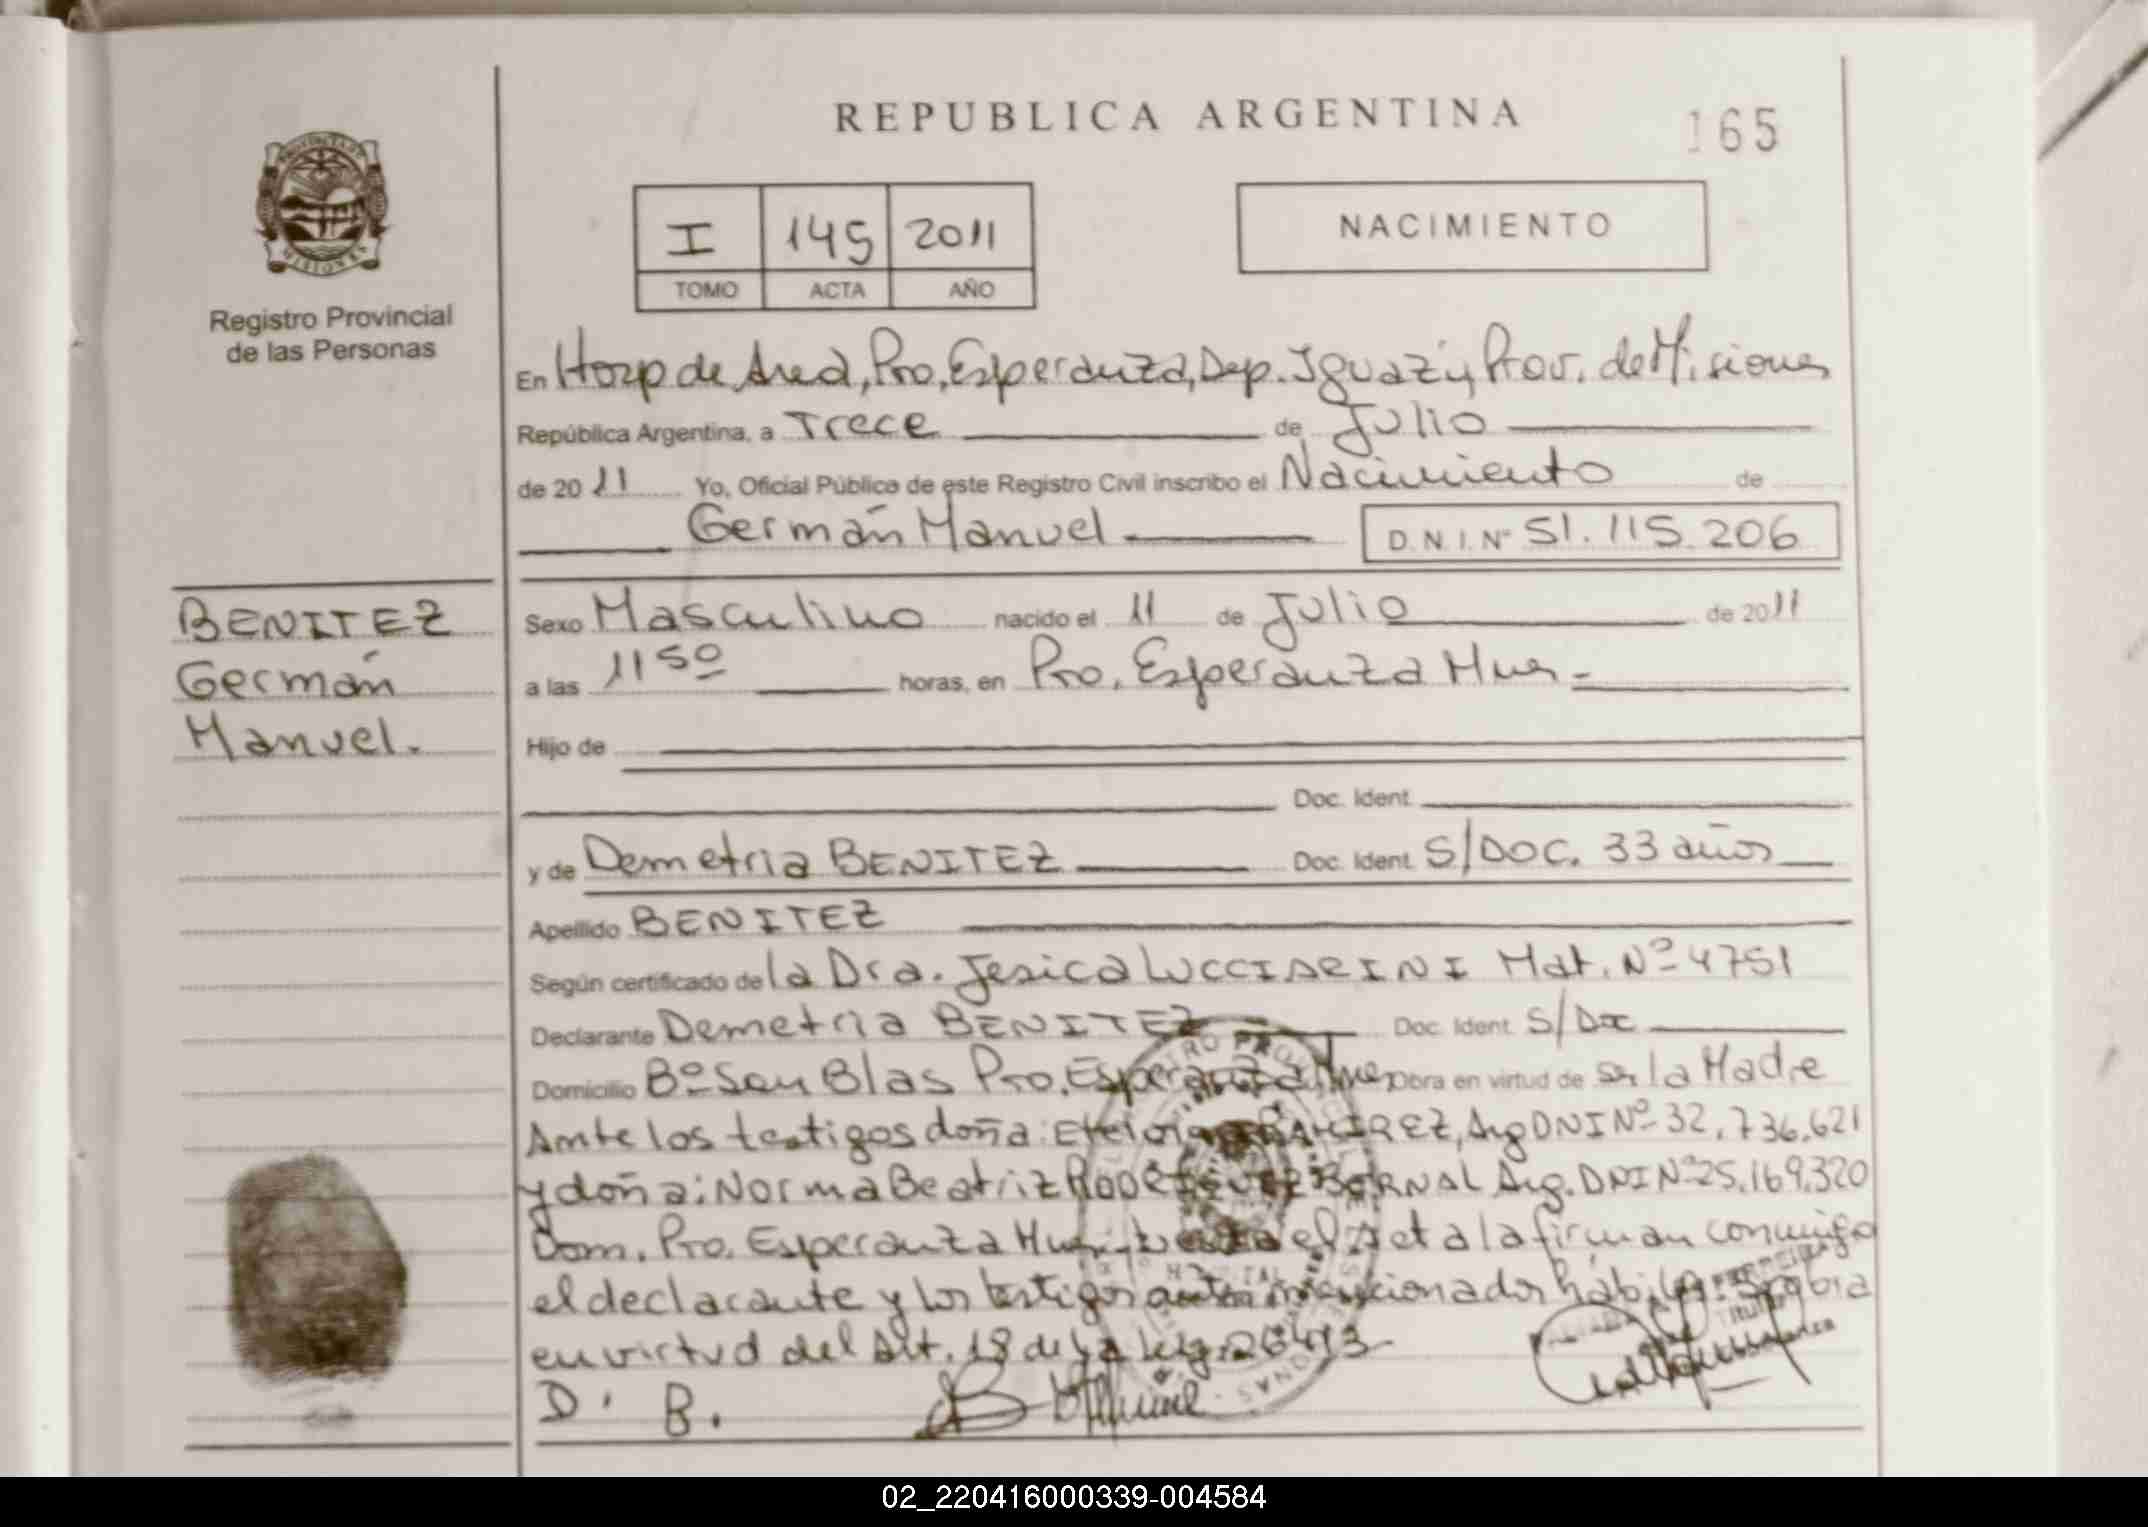 REPUBLICA ARGENTINA
165
PROVINCIA DE
MISIONES
Registro Provincial
de las Personas
I 145 2011
TOMO ACTA AÑO
NACIMIENTO
En Hosp de Area, Pto, Esperanza, Dep. Iguazú Prov. de Misiones
República Argentina, a Trece de Julio
de 2011 Yo, Oficial Público de este Registro Civil inscribo el Nacimiento de
Germán Manuel D.N.I. Nº 51.115.206
BENITEZ
Germán
Manuel.
Sexo Masculino nacido el 11 de Julio de 2011
a las 11 50 horas, en Pto, Esperanza Mnes-
Hijo de
Doc. Ident.
y de Demetria BENITEZ Doc. Ident. S/DOC. 33 años
Apellido BENITEZ
Según certificado de la Dra. Jesica LUCCIARINI Mat. Nº 4751
Declarante Demetria BENITEZ Doc. Ident. S/Doc
Domicilio Bº San Blas Pto. Esperanza Mnes Obra en virtud de ser la Madre
Ante los testigos doña: RAMIREZ, Arg DNI Nº 32.736.621
y doña: Norma Beatriz BERNAL Arg. DNI Nº 25.169.320
Dom. Pto. Esperanza el Acta la firman conmigo
el declarante y los testigos mencionados hábil
en virtud del Art. 18 de la Ley: 26413
D. B.
02_220416000339-004584